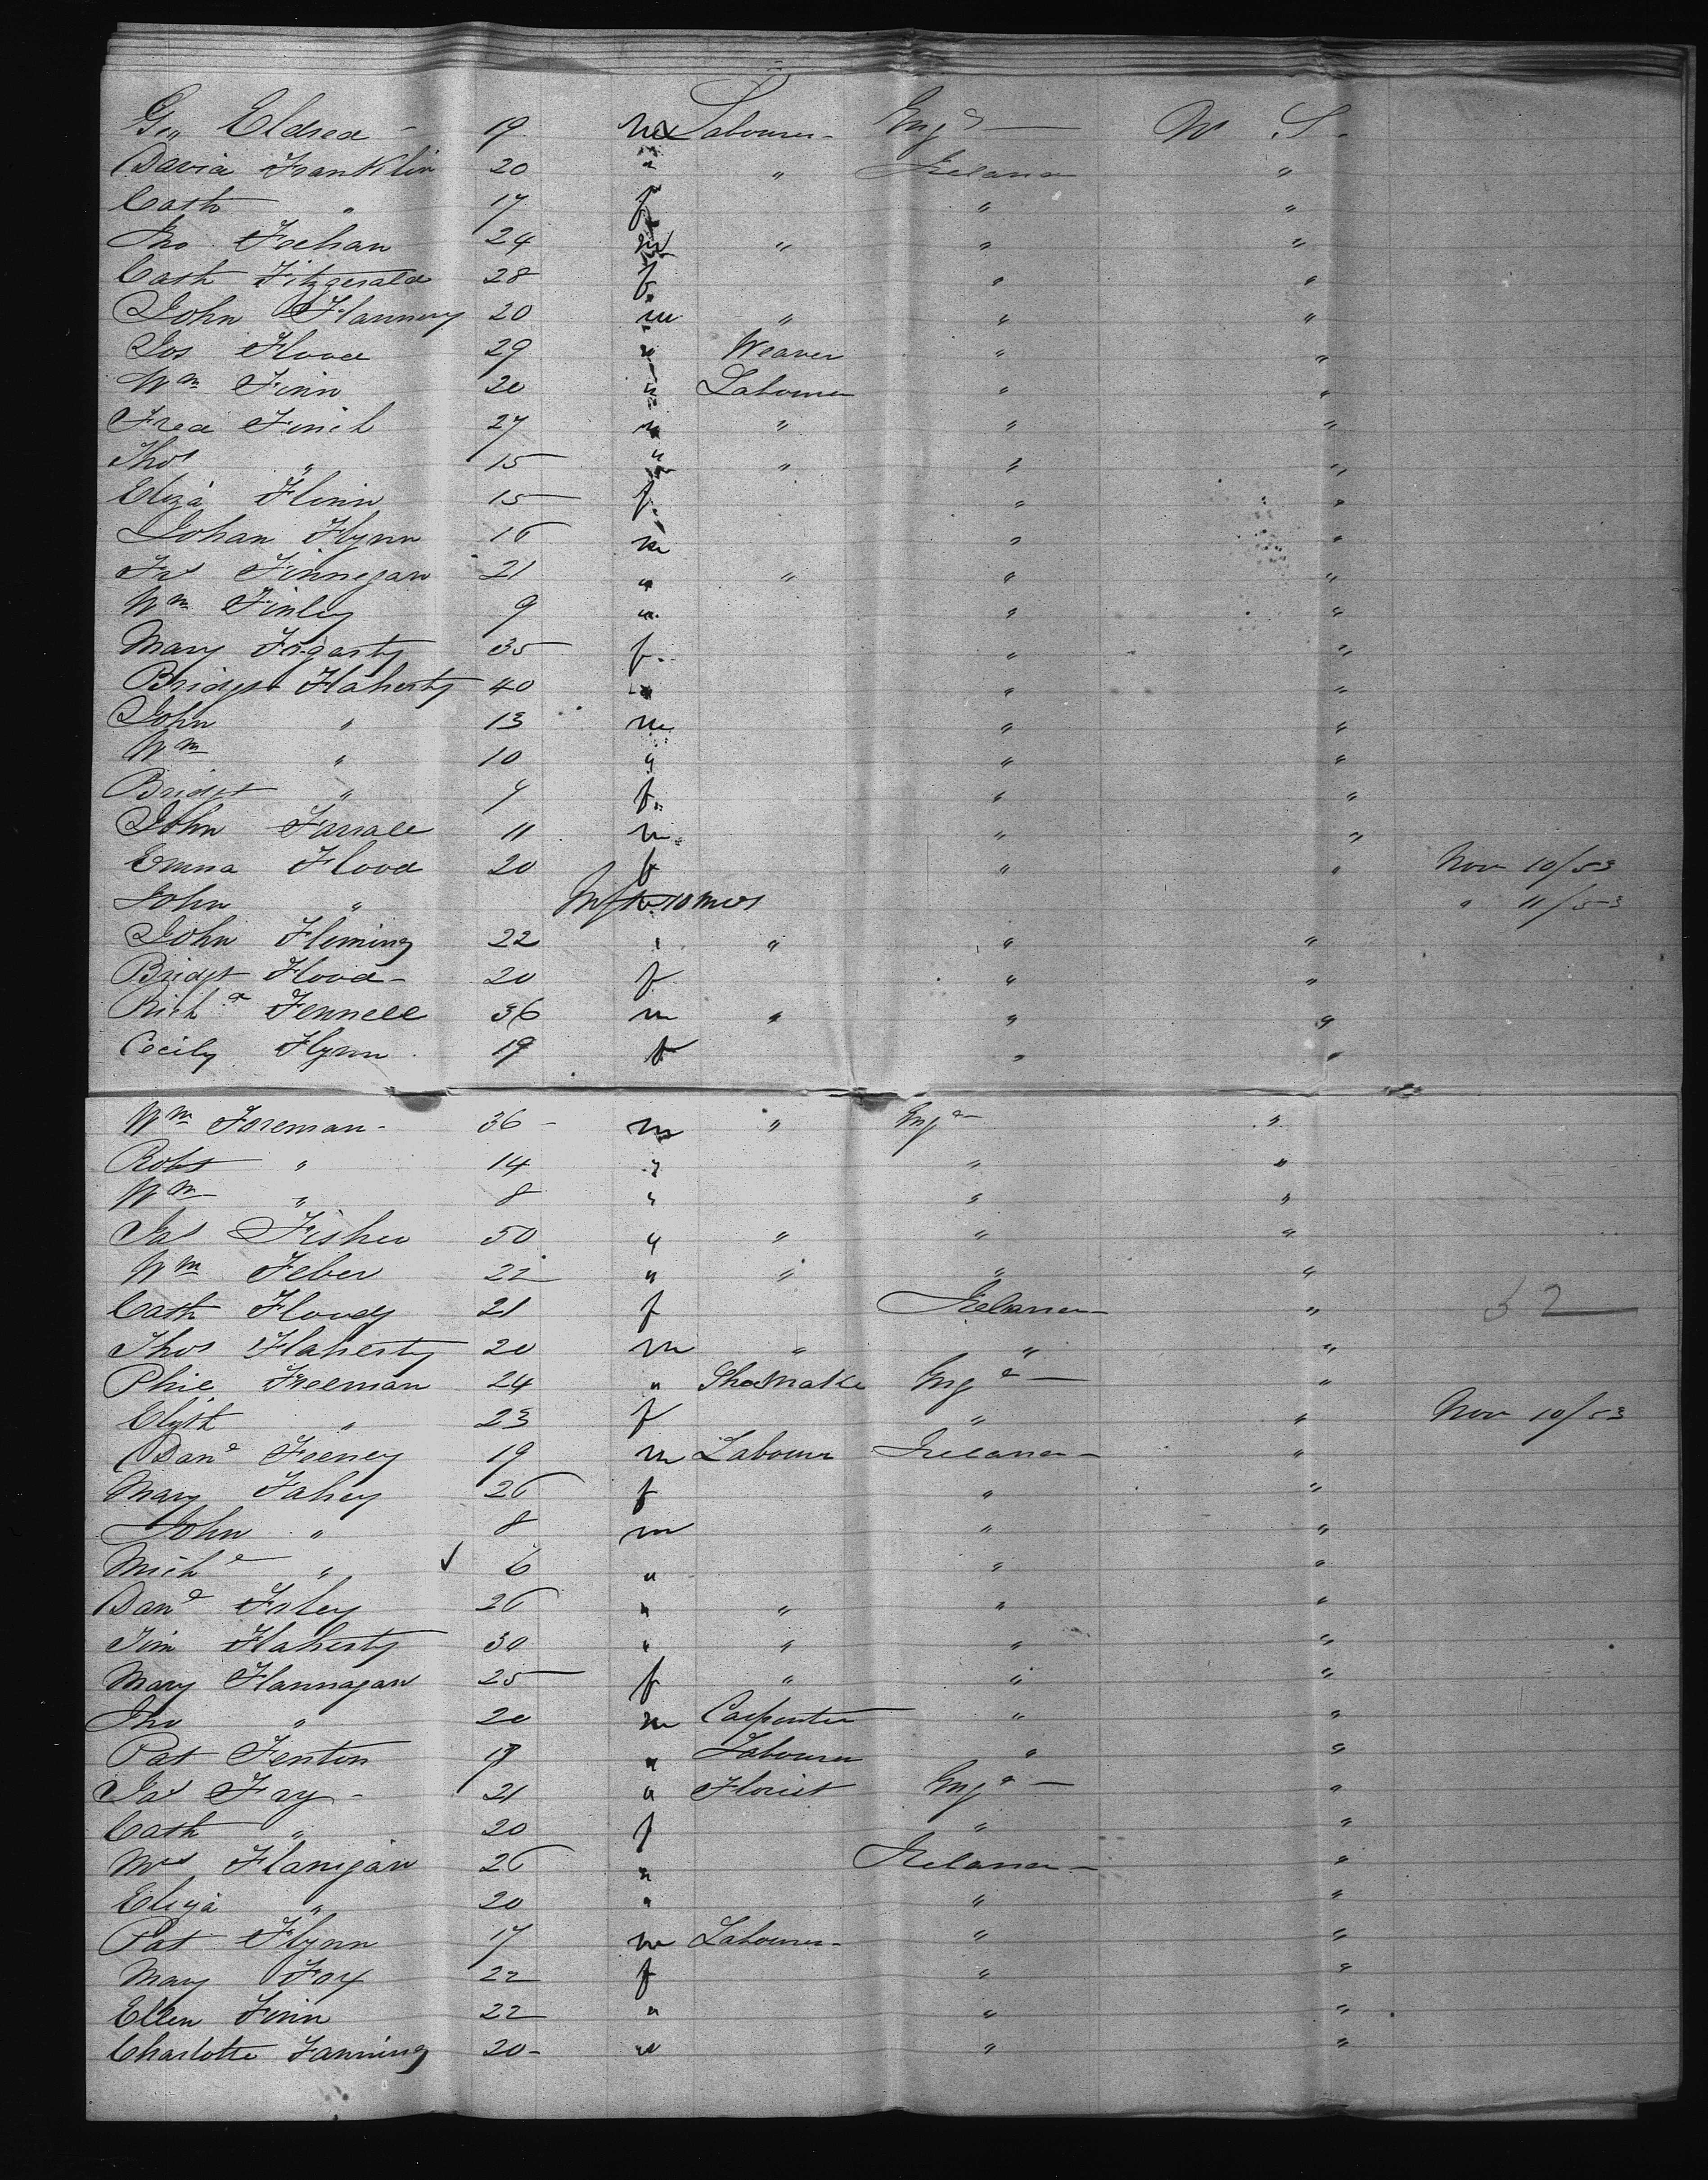 Geo Eldred - 19 m Labourer - Engd — U S.
David Franklin 20 " " Ireland "
Cath " 17 f " "
Jno Feehan 24 m " " "
Cath Fitzgerald 28 f " "
John Flannery 20 m " " "
Jos Flood 29 " Weaver " "
Wm Finn 20 " Labourer " "
Fred Finch 27 " " " "
Thos " 15 " " " "
Eliza Flinn 15 f " "
Johan Flynn 16 m " "
Jas Finnegan 21 " " " "
Wm Finley 9 " " "
Mary Fogarty 35 f " "
Bridget Flaherty 40 " " "
John " 13 m " "
Wm " 10 " " "
Bridget " 7 f " "
John Farrall 11 m " "
Emma Flood 20 f " " Nov 10/53
John " Inft 10 mos " 11/53
John Fleming 22 " " " "
Bridget Flood - 20 f " "
Richd Fennell 36 m " " "
Cecily Flynn 19 f " "
Wm Foreman - 36 - m " Engd - "
Robt " 14 " " "
Wm " 8 " " "
Jas Fisher 50 " " " "
Wm Feber 22 " " " "
Cath Floody 21 f Ireland " 52
Thos Flaherty 20 m " " "
Phil Freeman 24 " Shoemaker Engd — "
Elizth " 23 f " " Nov 10/53
Danl Feeney 19 m Labourer Ireland - "
Mary Fahey 26 f " "
John " 8 m " "
Michl " ✓ 6 " " "
Danl Foley 26 " " " "
Tim Flaherty 30 " " " "
Mary Flannagan 25 f " " "
Jno " 20 m Carpenter " "
Pat Fenton 19 " Labourer " "
Jas Fry - 21 " Florist Engd - "
Cath " 20 f " "
Mrs Flanigan 26 " Ireland - "
Eliza " 20 " " "
Pat Flynn 17 m Labourer - " "
Mary Fox 22 f " "
Ellen Finn 22 " " "
Charlotte Fanning 20 - " " "